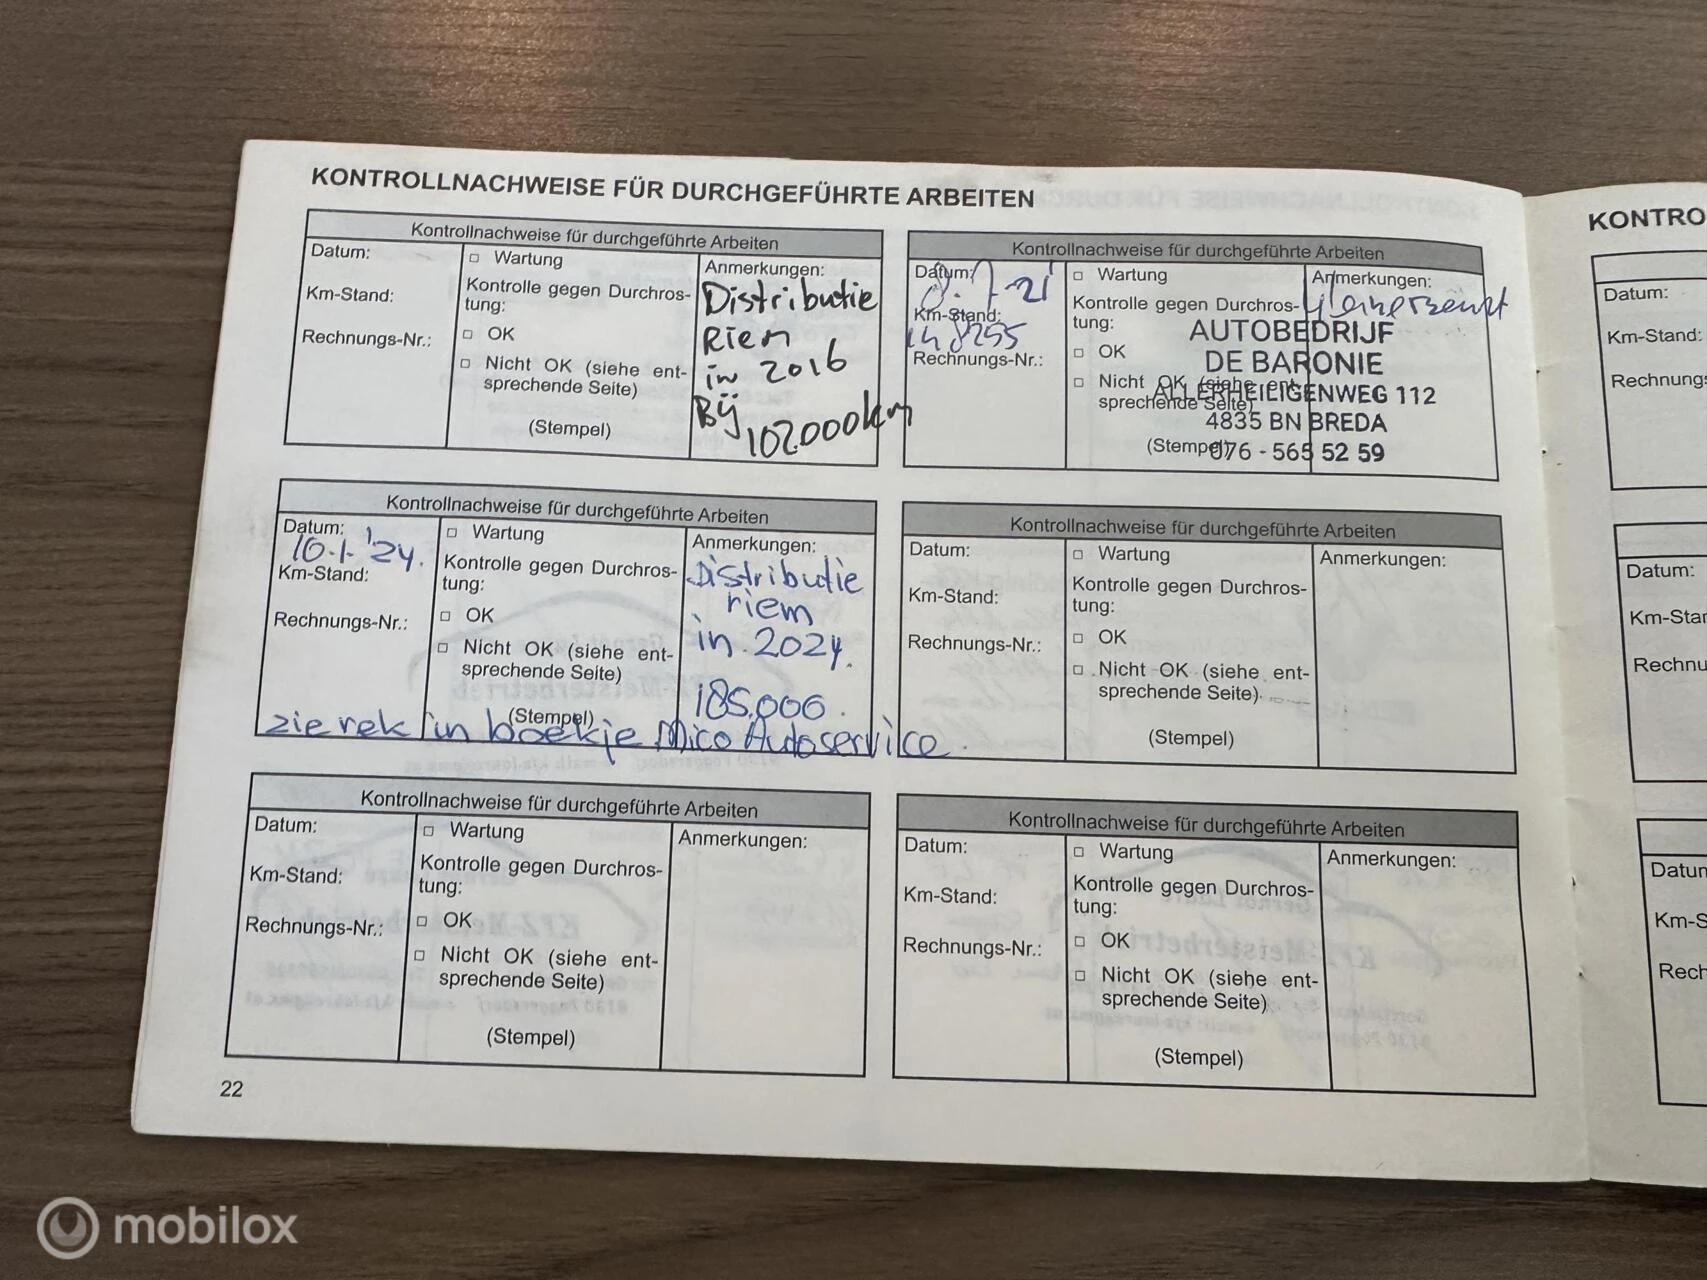 KONTROLLNACHWEISE FÜR DURCHGEFÜHRTE ARBEITEN
Kontrollnachweise für durchgeführte Arbeiten
Datum:
Km-Stand:
Rechnungs-Nr.:
□ Wartung
Kontrolle gegen Durchros-
tung:
□ OK
□ Nicht OK (siehe ent-
sprechende Seite)
(Stempel)
Anmerkungen:
Distributie
Riem
in 2016
Bij
102.000km
Kontrollnachweise für durchgeführte Arbeiten
Datum:
8.7-21
Km-Stand:
148255
Rechnungs-Nr.:
□ Wartung
Kontrolle gegen Durchros-
tung:
□ OK
□ Nicht OK (siehe ent-
sprechende Seite)
(Stempel)
Anmerkungen:
AUTOBEDRIJF
DE BARONIE
ALLERHEILIGENWEG 112
4835 BN BREDA
076 - 565 52 59
Kontrollnachweise für durchgeführte Arbeiten
Datum:
10.1.'24.
Km-Stand:
Rechnungs-Nr.:
□ Wartung
Kontrolle gegen Durchros-
tung:
□ OK
□ Nicht OK (siehe ent-
sprechende Seite)
(Stempel)
Anmerkungen:
Distributie
riem
in 2024.
185.000.
zie rek in boekje Mico Autoservice.
Kontrollnachweise für durchgeführte Arbeiten
Datum:
Km-Stand:
Rechnungs-Nr.:
□ Wartung
Kontrolle gegen Durchros-
tung:
□ OK
□ Nicht OK (siehe ent-
sprechende Seite)
(Stempel)
Anmerkungen:
Kontrollnachweise für durchgeführte Arbeiten
Datum:
Km-Stand:
Rechnungs-Nr.:
□ Wartung
Kontrolle gegen Durchros-
tung:
□ OK
□ Nicht OK (siehe ent-
sprechende Seite)
(Stempel)
Anmerkungen:
Kontrollnachweise für durchgeführte Arbeiten
Datum:
Km-Stand:
Rechnungs-Nr.:
□ Wartung
Kontrolle gegen Durchros-
tung:
□ OK
□ Nicht OK (siehe ent-
sprechende Seite)
(Stempel)
Anmerkungen:
22
KONTRO
Datum:
Km-Stand:
Rechnungs
Datum:
Km-Star
Rechnu
Datum
Km-S
Rech
mobilox